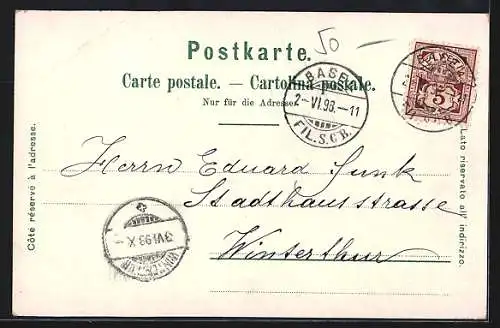 50 —
Postkarte.
Carte postale. — Cartolina postale.
Nur für die Adresse.
BASEL
2-VI.98.-11
FIL.S.C.B.
5
Herrn Eduard Funk
Stadthausstrasse
Winterthur
3VI.98.X
WINTERTHUR
Côté réservé à l'adresse.
Lato riservato all' indirizzo.